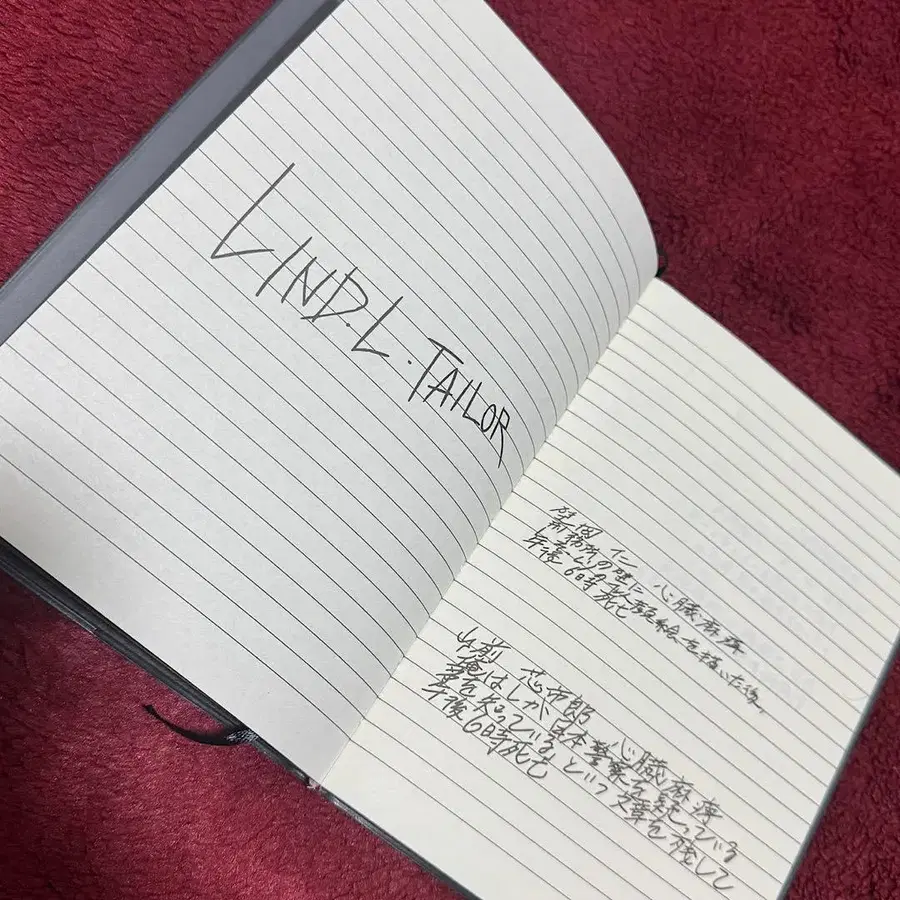 LIND.L.TAILOR
岡 仁 心臓麻痺
刑務所の壁に
を描いた後、
午後6時死亡
山前 志市郎 心臓麻痺
俺はLが日本警察を疑っている
事を知っている」という文章を残して
午後6時死亡